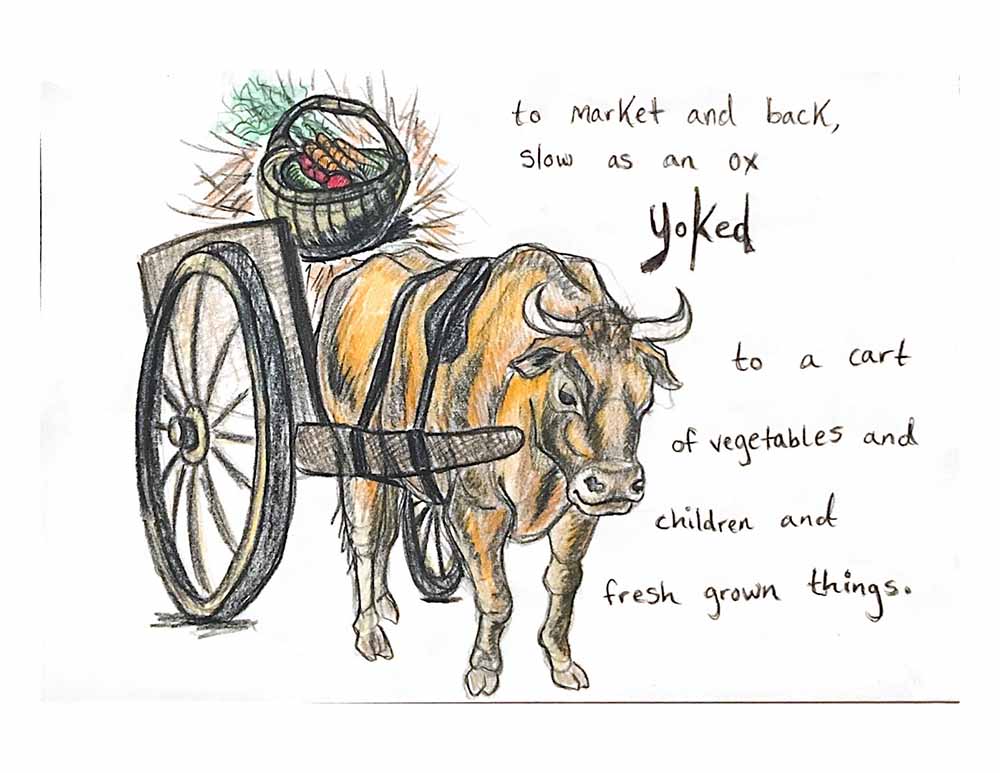 to market and back,
slow as an ox
yoked
to a cart
of vegetables and
children and
fresh grown things.